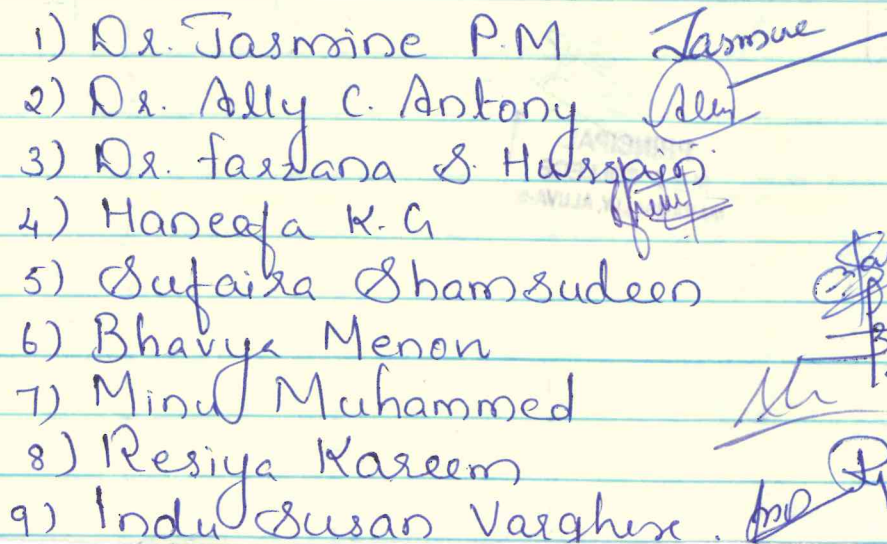 1) Dr. Jasmine P.M Jasmine
2) Dr. Ally C. Antony
3) Dr. Farzana S. Hussain
4) Haneefa K.G
5) Sufaira Shamsudeen
6) Bhavya Menon
7) Minu Muhammed
8) Resiya Kareem
9) Indu Susan Varghese.